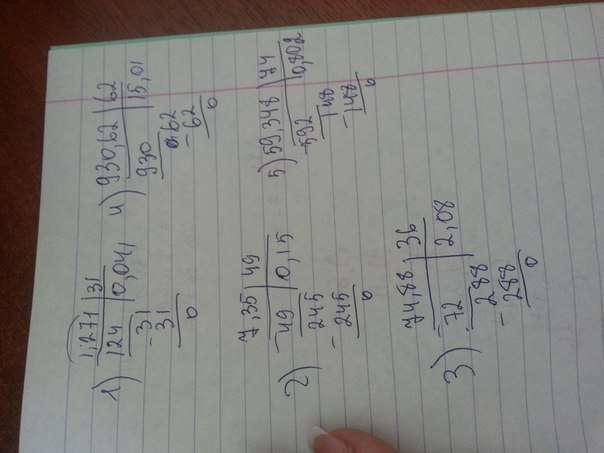 1) 1,271 | 31
124 | 0,041
- 31
31
0
2) 7,35 | 49
49 | 0,15
245
- 245
0
3) 74,88 | 36
- 72 | 2,08
288
- 288
0
4) 930,62 | 62
930 | 15,01
0,62
- 62
0
5) 59,348 | 74
592 | 0,802
148
- 148
0